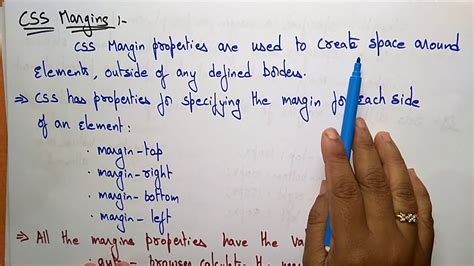 CSS Margins :-
CSS Margin properties are used to create space around
elements, outside of any defined borders.
⇒ CSS has properties for specifying the margin for each side
of an element:
· margin-top
· margin-right
· margin-bottom
· margin-left
⇒ All the margins properties have the
auto - browser calculate the